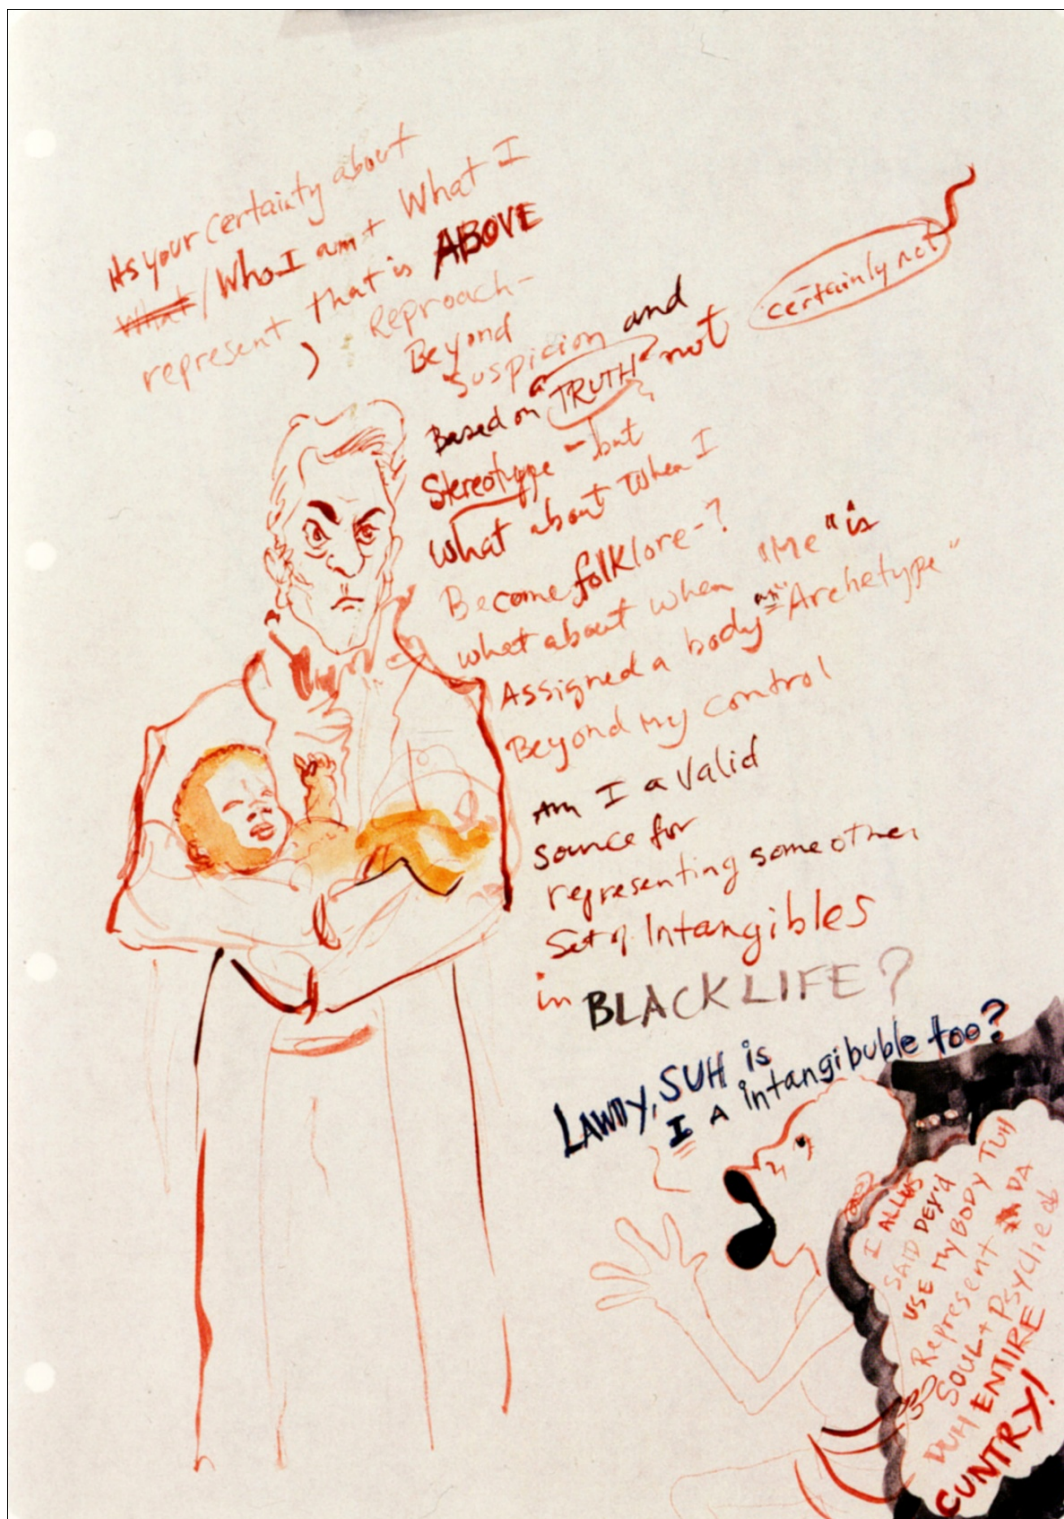 Is your certainty about
What / Who I am + What I
represent, that is ABOVE
Reproach-
Beyond
Suspicion and
Based on a TRUTH not certainly not
Stereotype - but
what about when I
Become folklore-?
what about when "Me" is
Assigned a body an "Archetype"
Beyond my control
Am I a Valid
source for
representing some other
Set of Intangibles
in BLACK LIFE?
LAWDY, SUH is
I A intangibuble too?
I ALLUS
SAID DEY'd
USE MY BODY TUH
Represent DA
SOUL + PSYCHE of
DUH ENTIRE
CUNTRY!